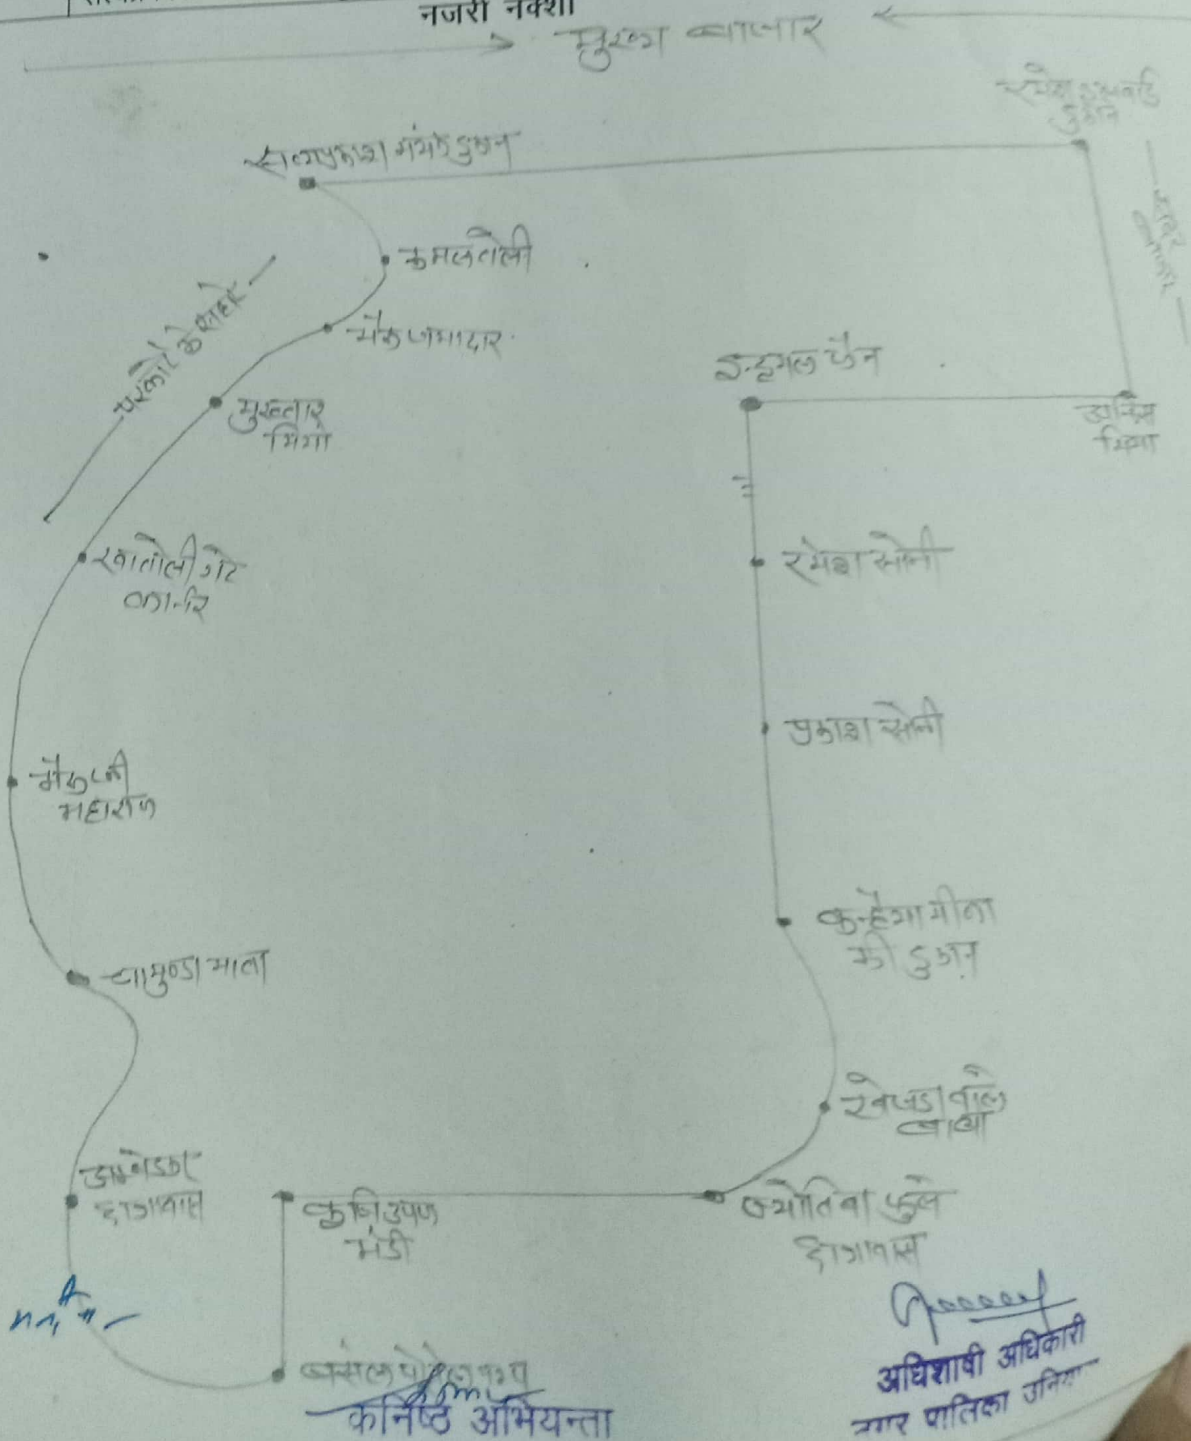 नजरी नक्शा
मुख्य बाजार
सत्यप्रकाश मंगल दुकान
रमेश
दुकान
कमल तेली
परकोटे के सहारे
भैरू जमादार
मुख्तार
मियां
इन्द्रमल जैन
मियां
खातोली गेट
कार्नर
रमेश सोनी
प्रकाश सोनी
भैरू जी
महाराज
कन्हैया मीना
की दुकान
चामुण्डा माता
खेजडा वाले
बाबा
अम्बेडकर
छात्रावास
कृषि उपज
मंडी
ज्योतिबा फुले
छात्रावास
बंसल पेट्रोल पम्प
कनिष्ठ अभियन्ता
अधिशाषी अधिकारी
नगर पालिका उनियारा